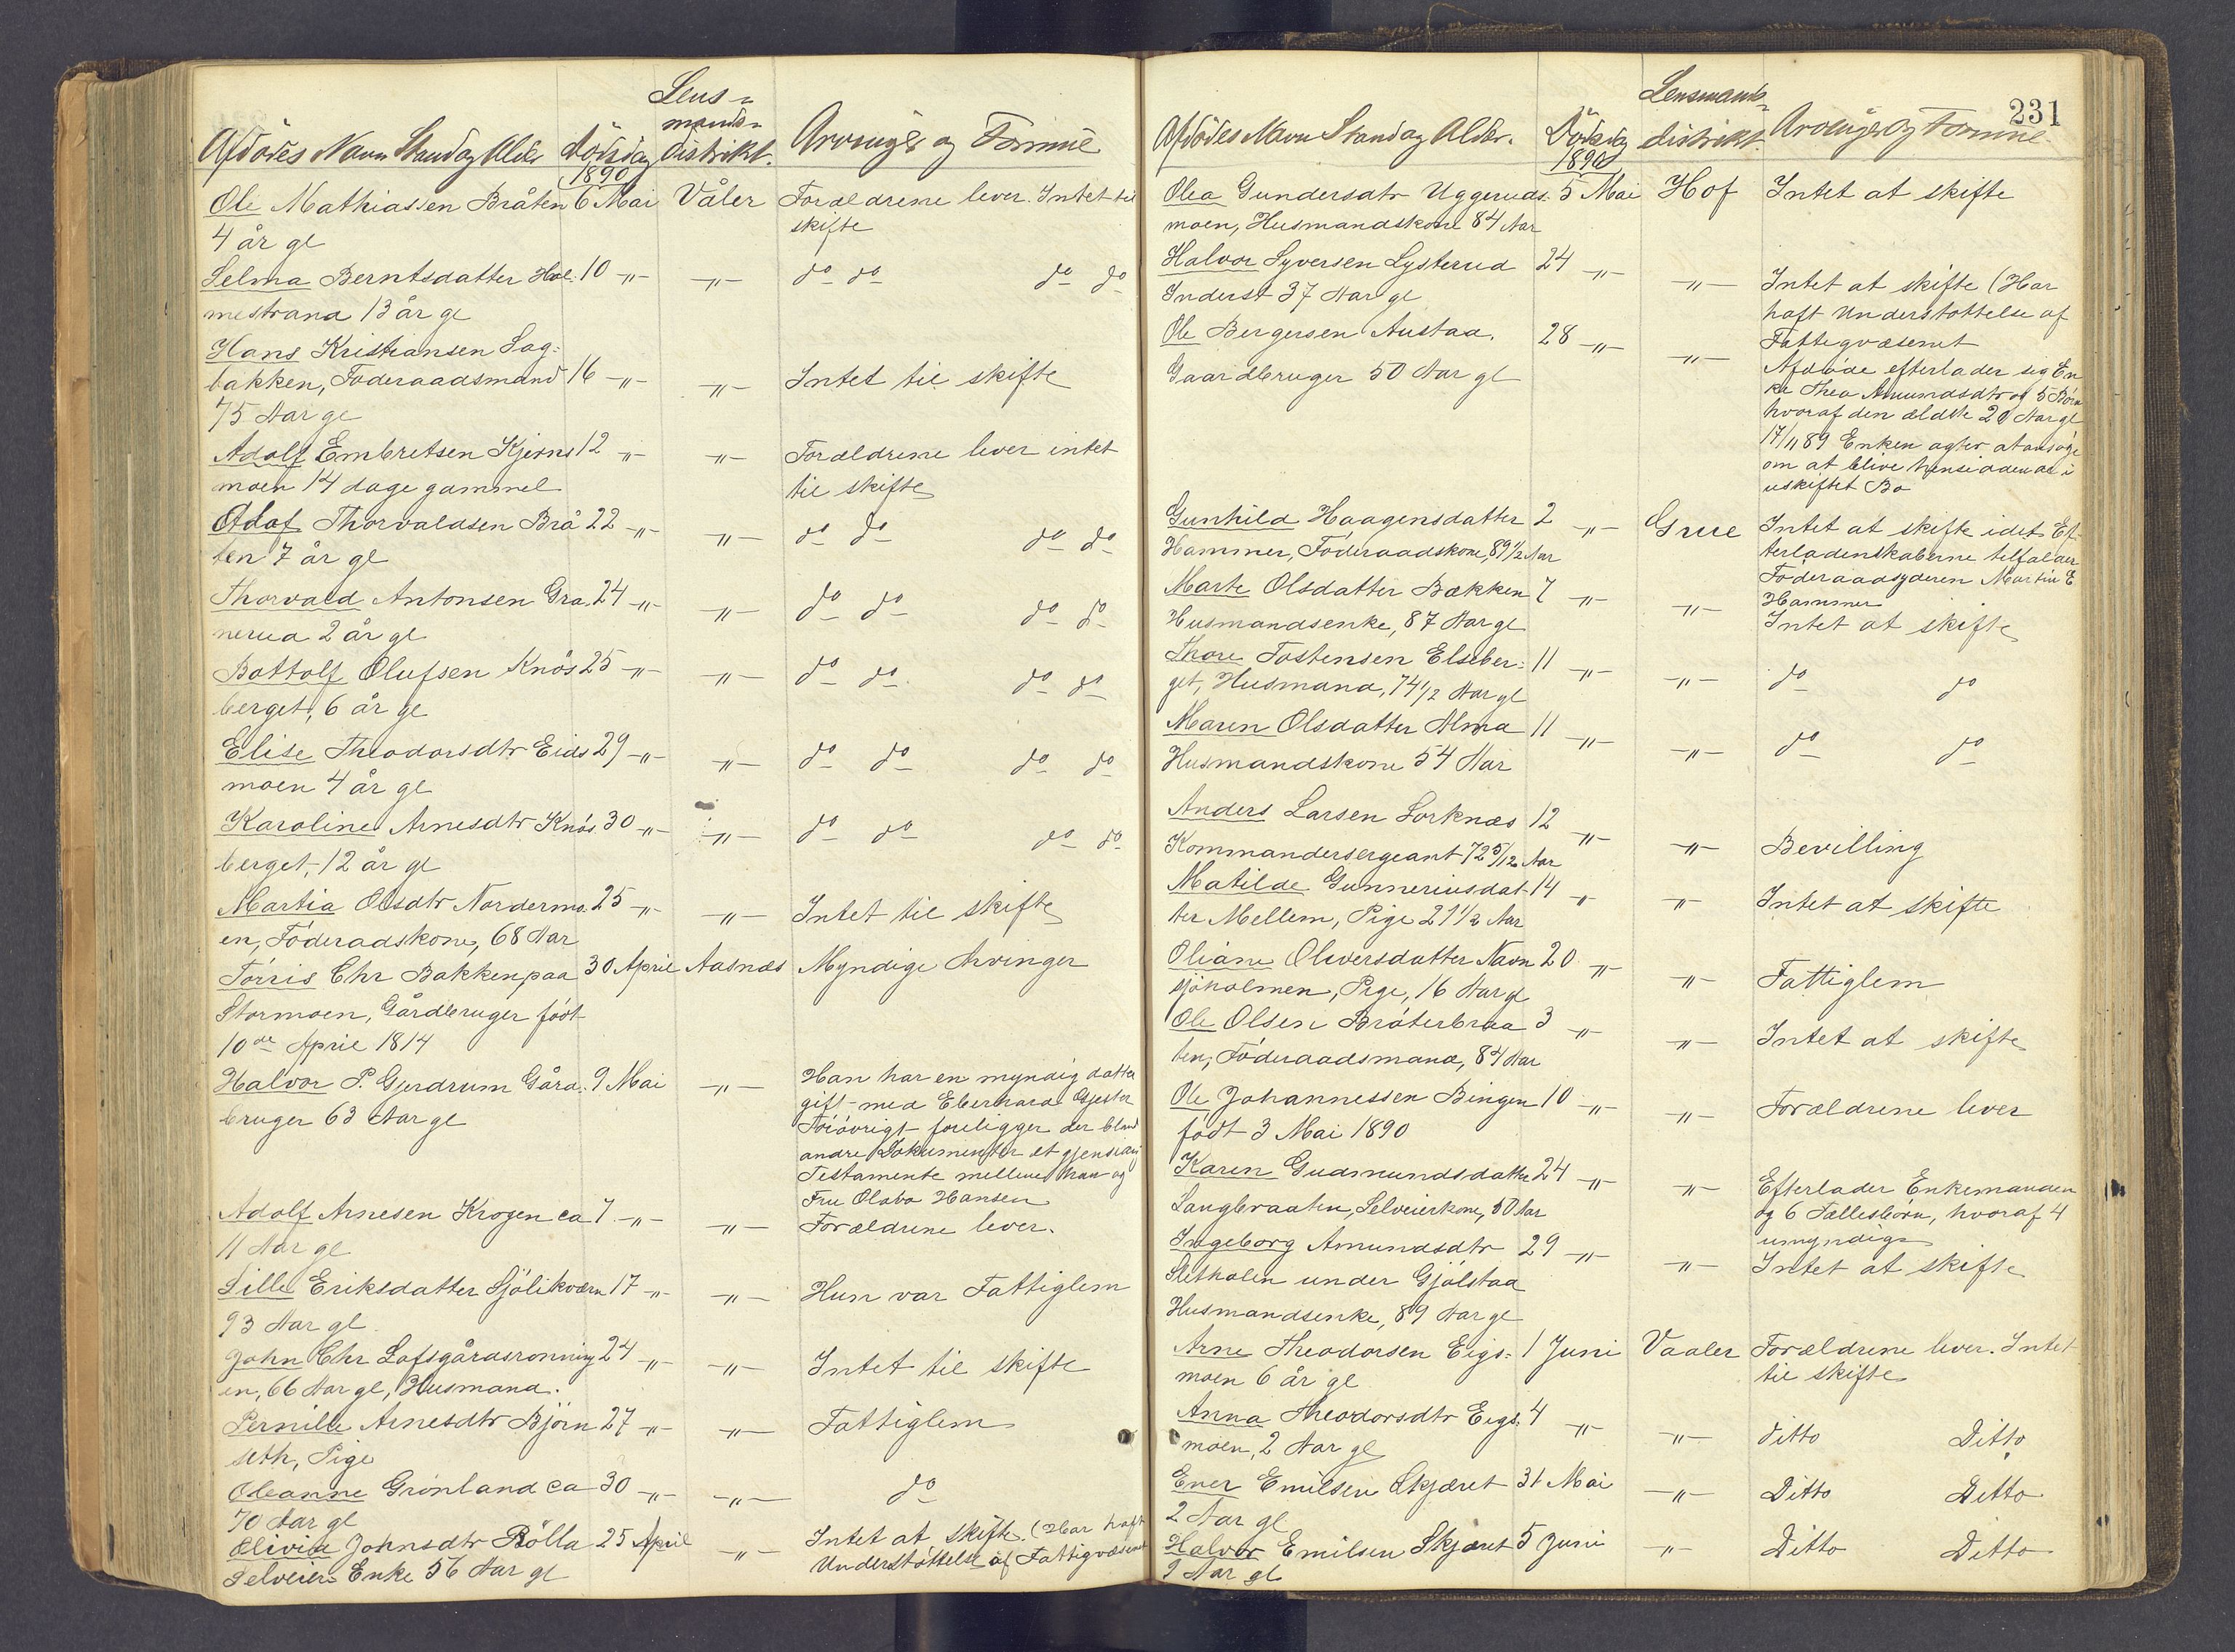 Afdödes Navn Stand og Alder Dödsdag 1890 Lens-mands-distrikt. Arvinger og Formue
Ole Mathiassen Bråten 6 Mai Våler Forældrene lever. Intet til
4 år gl skifte
Selma Berntsdatter Hol- 10 -„- -„- do do do do
mestrand 13 år gl
Hans Kristiansen Sag-
bakken, Föderaadsmand 16 -„- -„- Intet til skifte
75 Aar gl
Adolf Embretsen Kjerns 12 -„- -„- Forældrene lever intet
moen 14 dage gammel til skifte
Olaf Thorvaldsen Brå 22 -„- -„- do do do do
ten 7 år gl
Thorvald Antonsen Gra- 24 -„- -„- do do do do
nerud 2 år gl
Bottolf Olufsen Knös 25 -„- -„- do do do do
berget, 6 år gl
Elise Theodorsdtr Eids 29 -„- -„- do do do do
moen 4 år gl
Karoline Arnesdtr Knös 30 -„- -„- do do do do
berget, 12 år gl
Martia Olsdtr Nordermo 25 -„- -„- Intet til skifte
en, Föderadskone, 68 Aar
Törris Chr Bakken paa 30 April Aasnæs Myndige Arvinger
Stormoen, Gårdbruger födt
10de April 1814
Halvor P. Gjerdrum Gård- 9 Mai -„- Han har en myndig datter
bruger 63 Aar gl gift med Eberhard Gjester
Forövrigt foreligger der bland
andre Dokumenter et gjensidig
Testamente mellem ham og
Fru Olava Hansen
Adolf Arnesen Krogen ca 7 -„- -„- Forældrene lever.
11 Aar gl
Sille Eriksdatter Sjölikværn 17 -„- -„- Hun var Fattiglem
93 Aar gl
John Chr Lofsgårdsrönning 24 -„- -„- Intet til skifte
en, 66 Aar gl, Husmand.
Pernille Arnesdtr Björn 27 -„- -„- Fattiglem
seth, Pige
Oleanne Grönland ca 30 -„- -„- do
70 Aar gl
Olivia Johnsdtr Rölla 25 April -„- Intet at skifte. (Har haft
Selveier Enke 56 Aar gl Understöttelse af Fattigvæsenet
231
Afdödes Navn Stand og Alder. Dödsdag 1890 Lensmands-distrikt. Arvinger og Formue.
Olea Gundersdtr Uggeruds- 5 Mai Hof Intet at skifte
moen, Husmandskone 84 Aar
Halvor Syversen Lysterud 24 -„- -„- Intet at skifte (Har
Inderst 37 Aar gl haft Understöttelse af
Fattigvæsenet
Ole Bergersen Austad. 28 -„- -„- Afdöde efterlader sig En
Gaardbruger 50 Aar gl ke Thea Amundsdtr og 5 Börn
hvoraf den ældste 20 Aar gl
17/11 89 Enken agter at ansöge
om at blive hensiddende i
uskiftet Bo
Gunhild Haagensdatter 2 -„- Grue Intet at skifte idet Ef-
Hammer, Föderaadskone, 89 1/2 Aar terladenskaberne tilfalder
Föderaadsyderen Martin E
Hammer
Marte Olsdatter Bækken 7 -„- -„- Intet at skifte
Husmandsenke, 87 Aar gl
Thore Tostensen Elseber- 11 -„- -„- do do
get, Husmand, 74 1/2 Aar gl
Maren Olsdatter Alma 11 -„- -„- do do
Husmandskone 54 Aar
Anders Larsen Sorknæs 12 -„- -„- Bevilling
Kommandersergeant 72 5/12 Aar
Matilde Gunneriusdat- 14 -„- -„- Intet at skifte
ter Mellem, Pige 21 1/2 Aar
Oliane Oliversdatter Navn 20 -„- -„- Fattiglem
sjöholmen, Pige, 16 Aar gl
Ole Olsen Bröterbraa 3 -„- -„- Intet at skifte
ten, Föderaadsmand, 84 Aar
Ole Johannessen Bingen 10 -„- -„- Forældrene lever
födt 3 Mai 1890
Karen Gudmundsdatter 24 -„- -„- Efterlader Enkemanden
Langbraaten, Selveierkone, 50 Aar og 6 Fællesbörn, hvoraf 4
umyndige
Ingeborg Amundsdtr 29 -„- -„- Intet at skifte
Sletholen under Gjölstad
Husmandsenke, 89 Aar gl
Arne Theodorsen Eigs- 1 Juni Vaaler Forældrene lever. Intet
moen 6 år gl til skifte
Anna Theodorsdtr Eigs- 4 -„- -„- ditto Ditto
moen, 2 Aar gl
Ener Emilsen Skjæret 31 Mai -„- Ditto Ditto
2 Aar gl
Halvor Emilsen Skjæret 5 Juni -„- Ditto Ditto
9 Aar gl